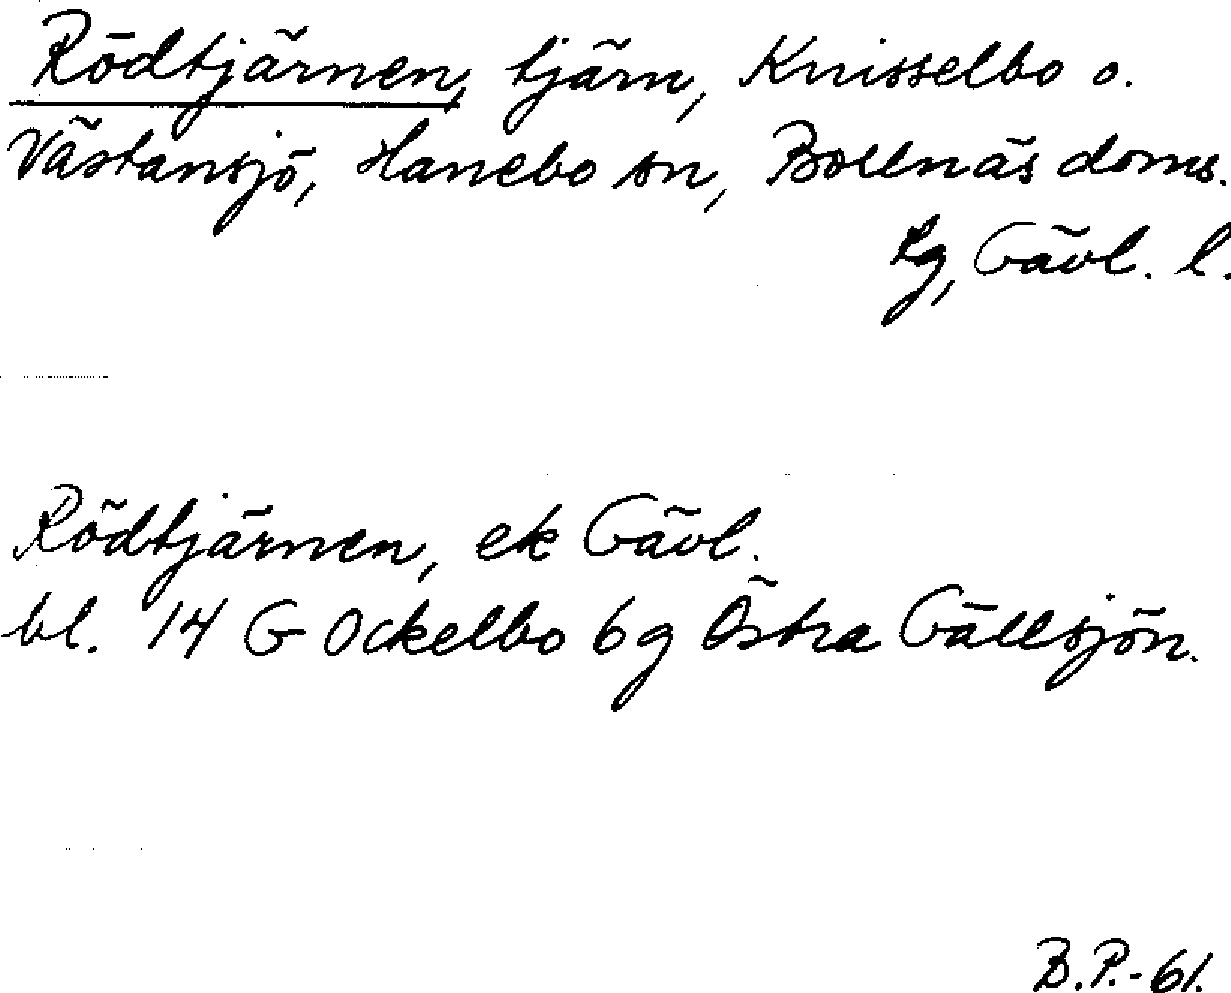 Rödtjärnen, tjärn, Knisselbo o.
Västansjö, Hanebo sn, Bollnäs doms.
lg, Gävl. l.
Rödtjärnen, ek Gävl.
bl. 14 G Ockelbo 6g Östra Gällsjön.
B.P.-61.